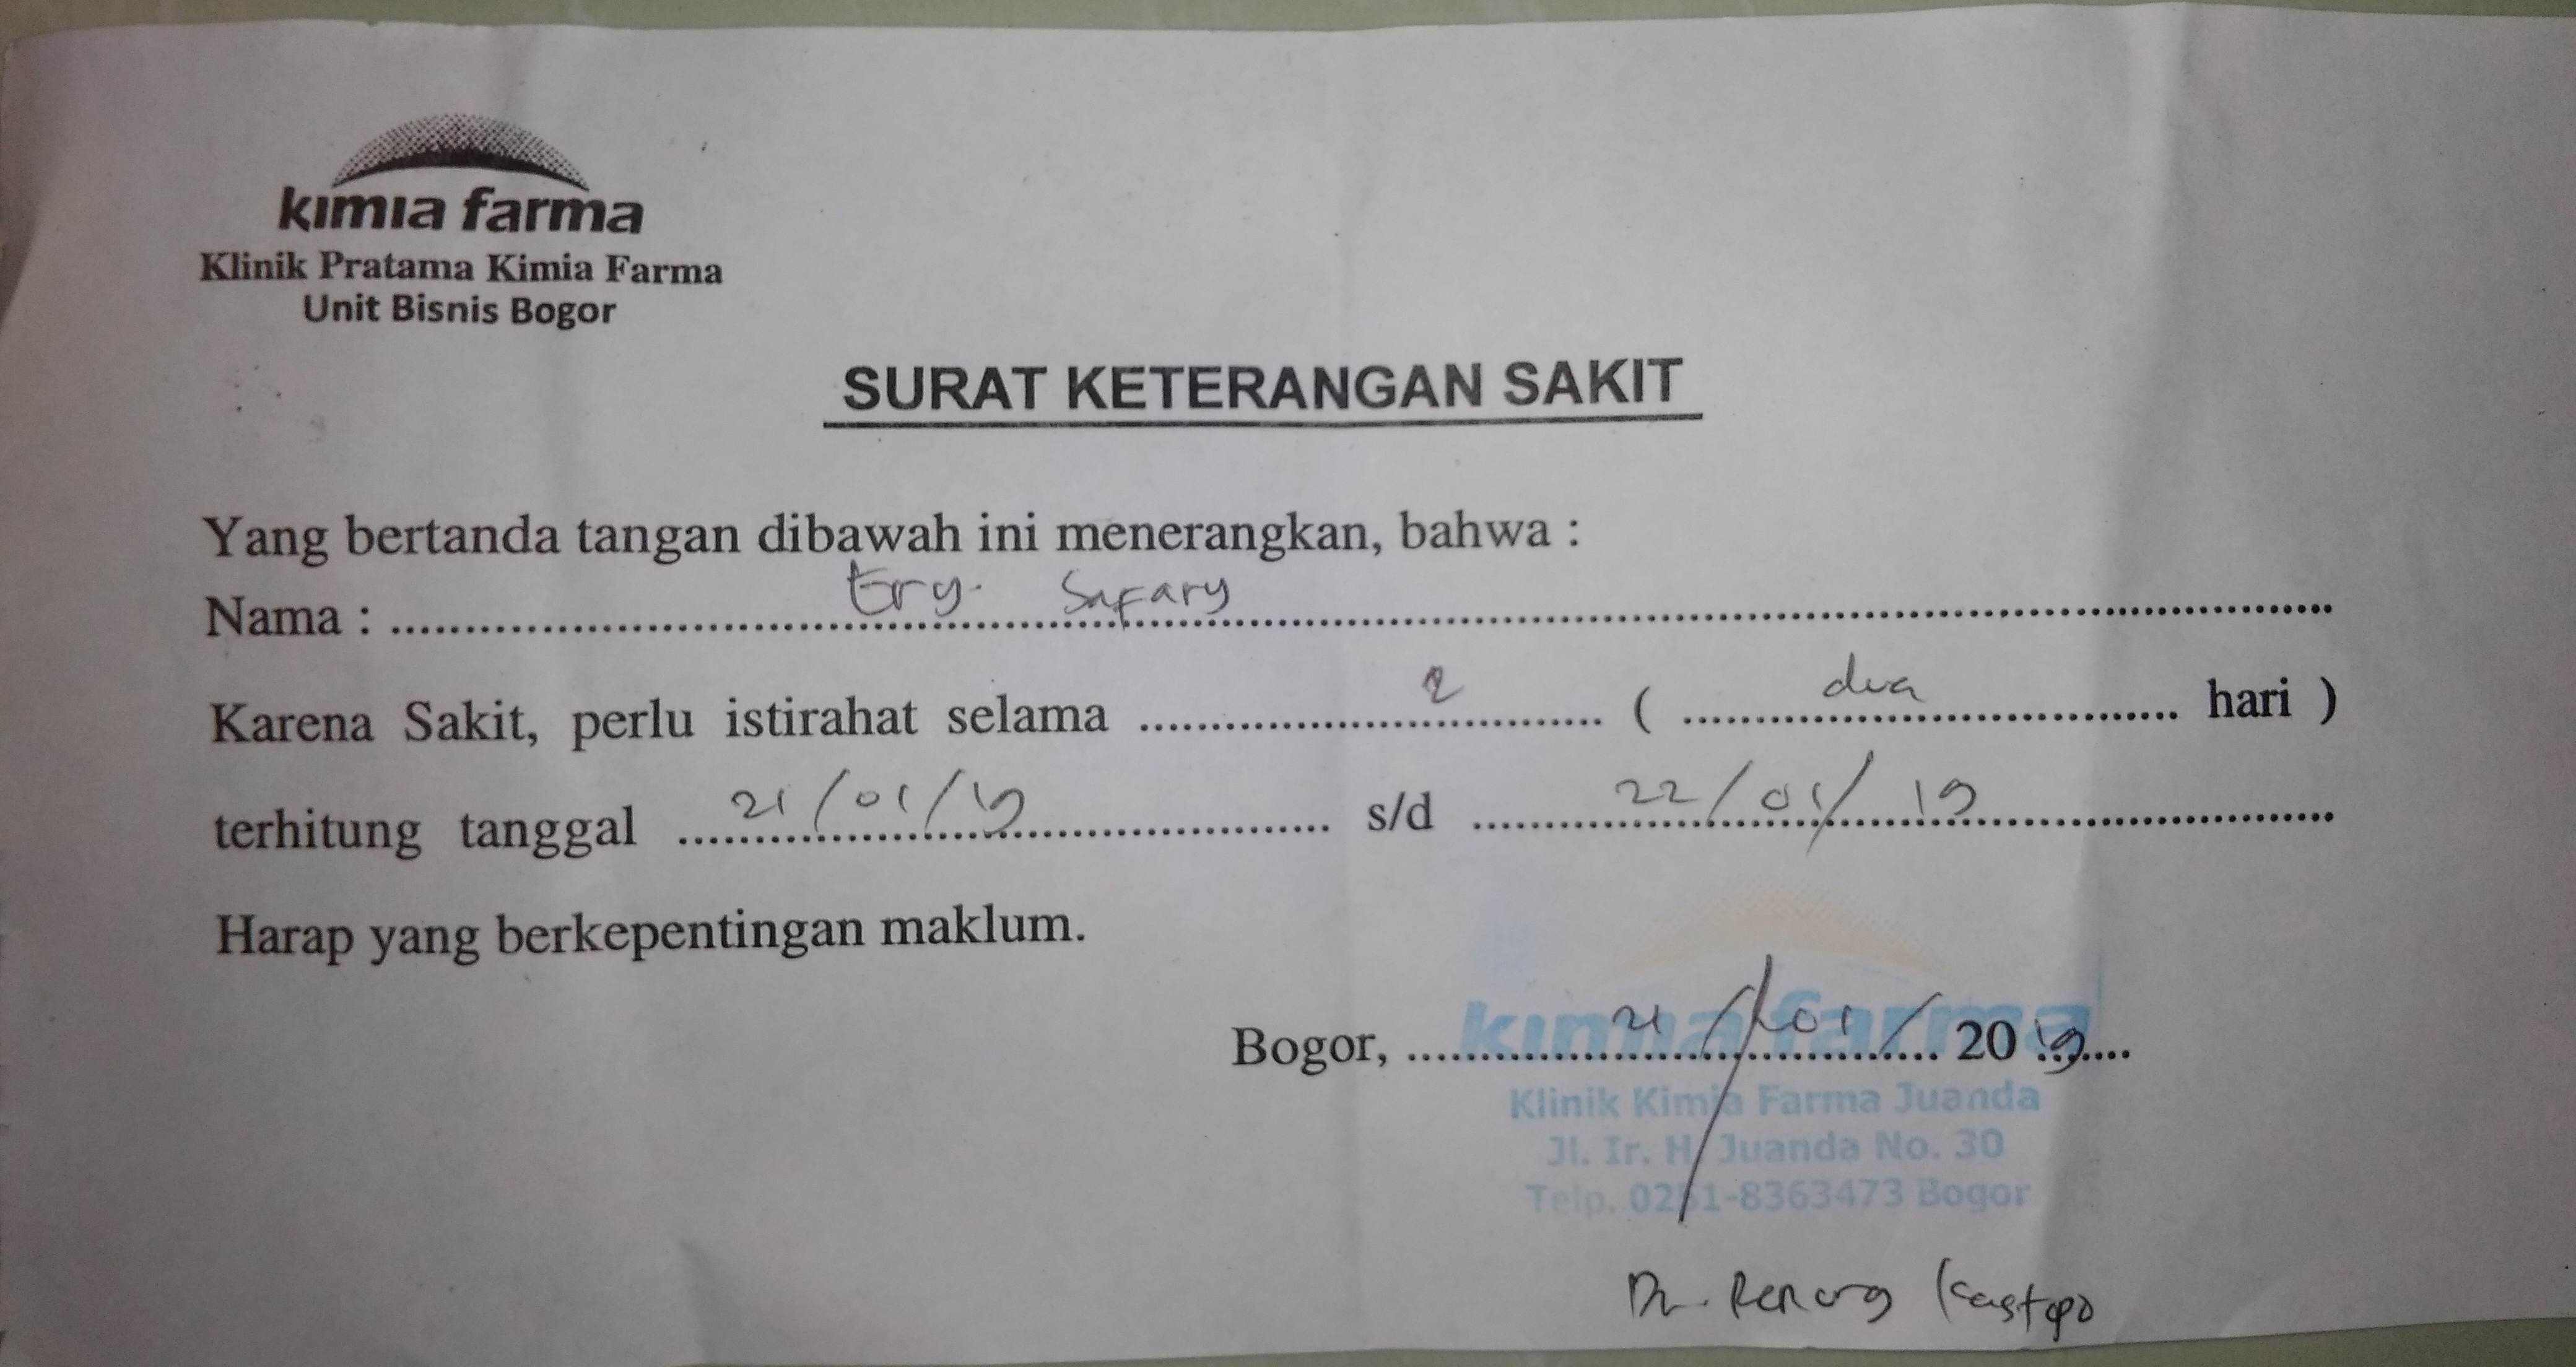 kimia farma
Klinik Pratama Kimia Farma
Unit Bisnis Bogor
SURAT KETERANGAN SAKIT
Yang bertanda tangan dibawah ini menerangkan, bahwa :
Nama : Ery. Safary
Karena Sakit, perlu istirahat selama 2 ( dua hari )
terhitung tanggal 21/01/19 s/d 22/01/19
Harap yang berkepentingan maklum.
Bogor, 21/01/2019
kimia farma
Klinik Kimia Farma Juanda
Jl. Ir. H. Juanda No. 30
Telp. 0251-8363473 Bogor
Dr.